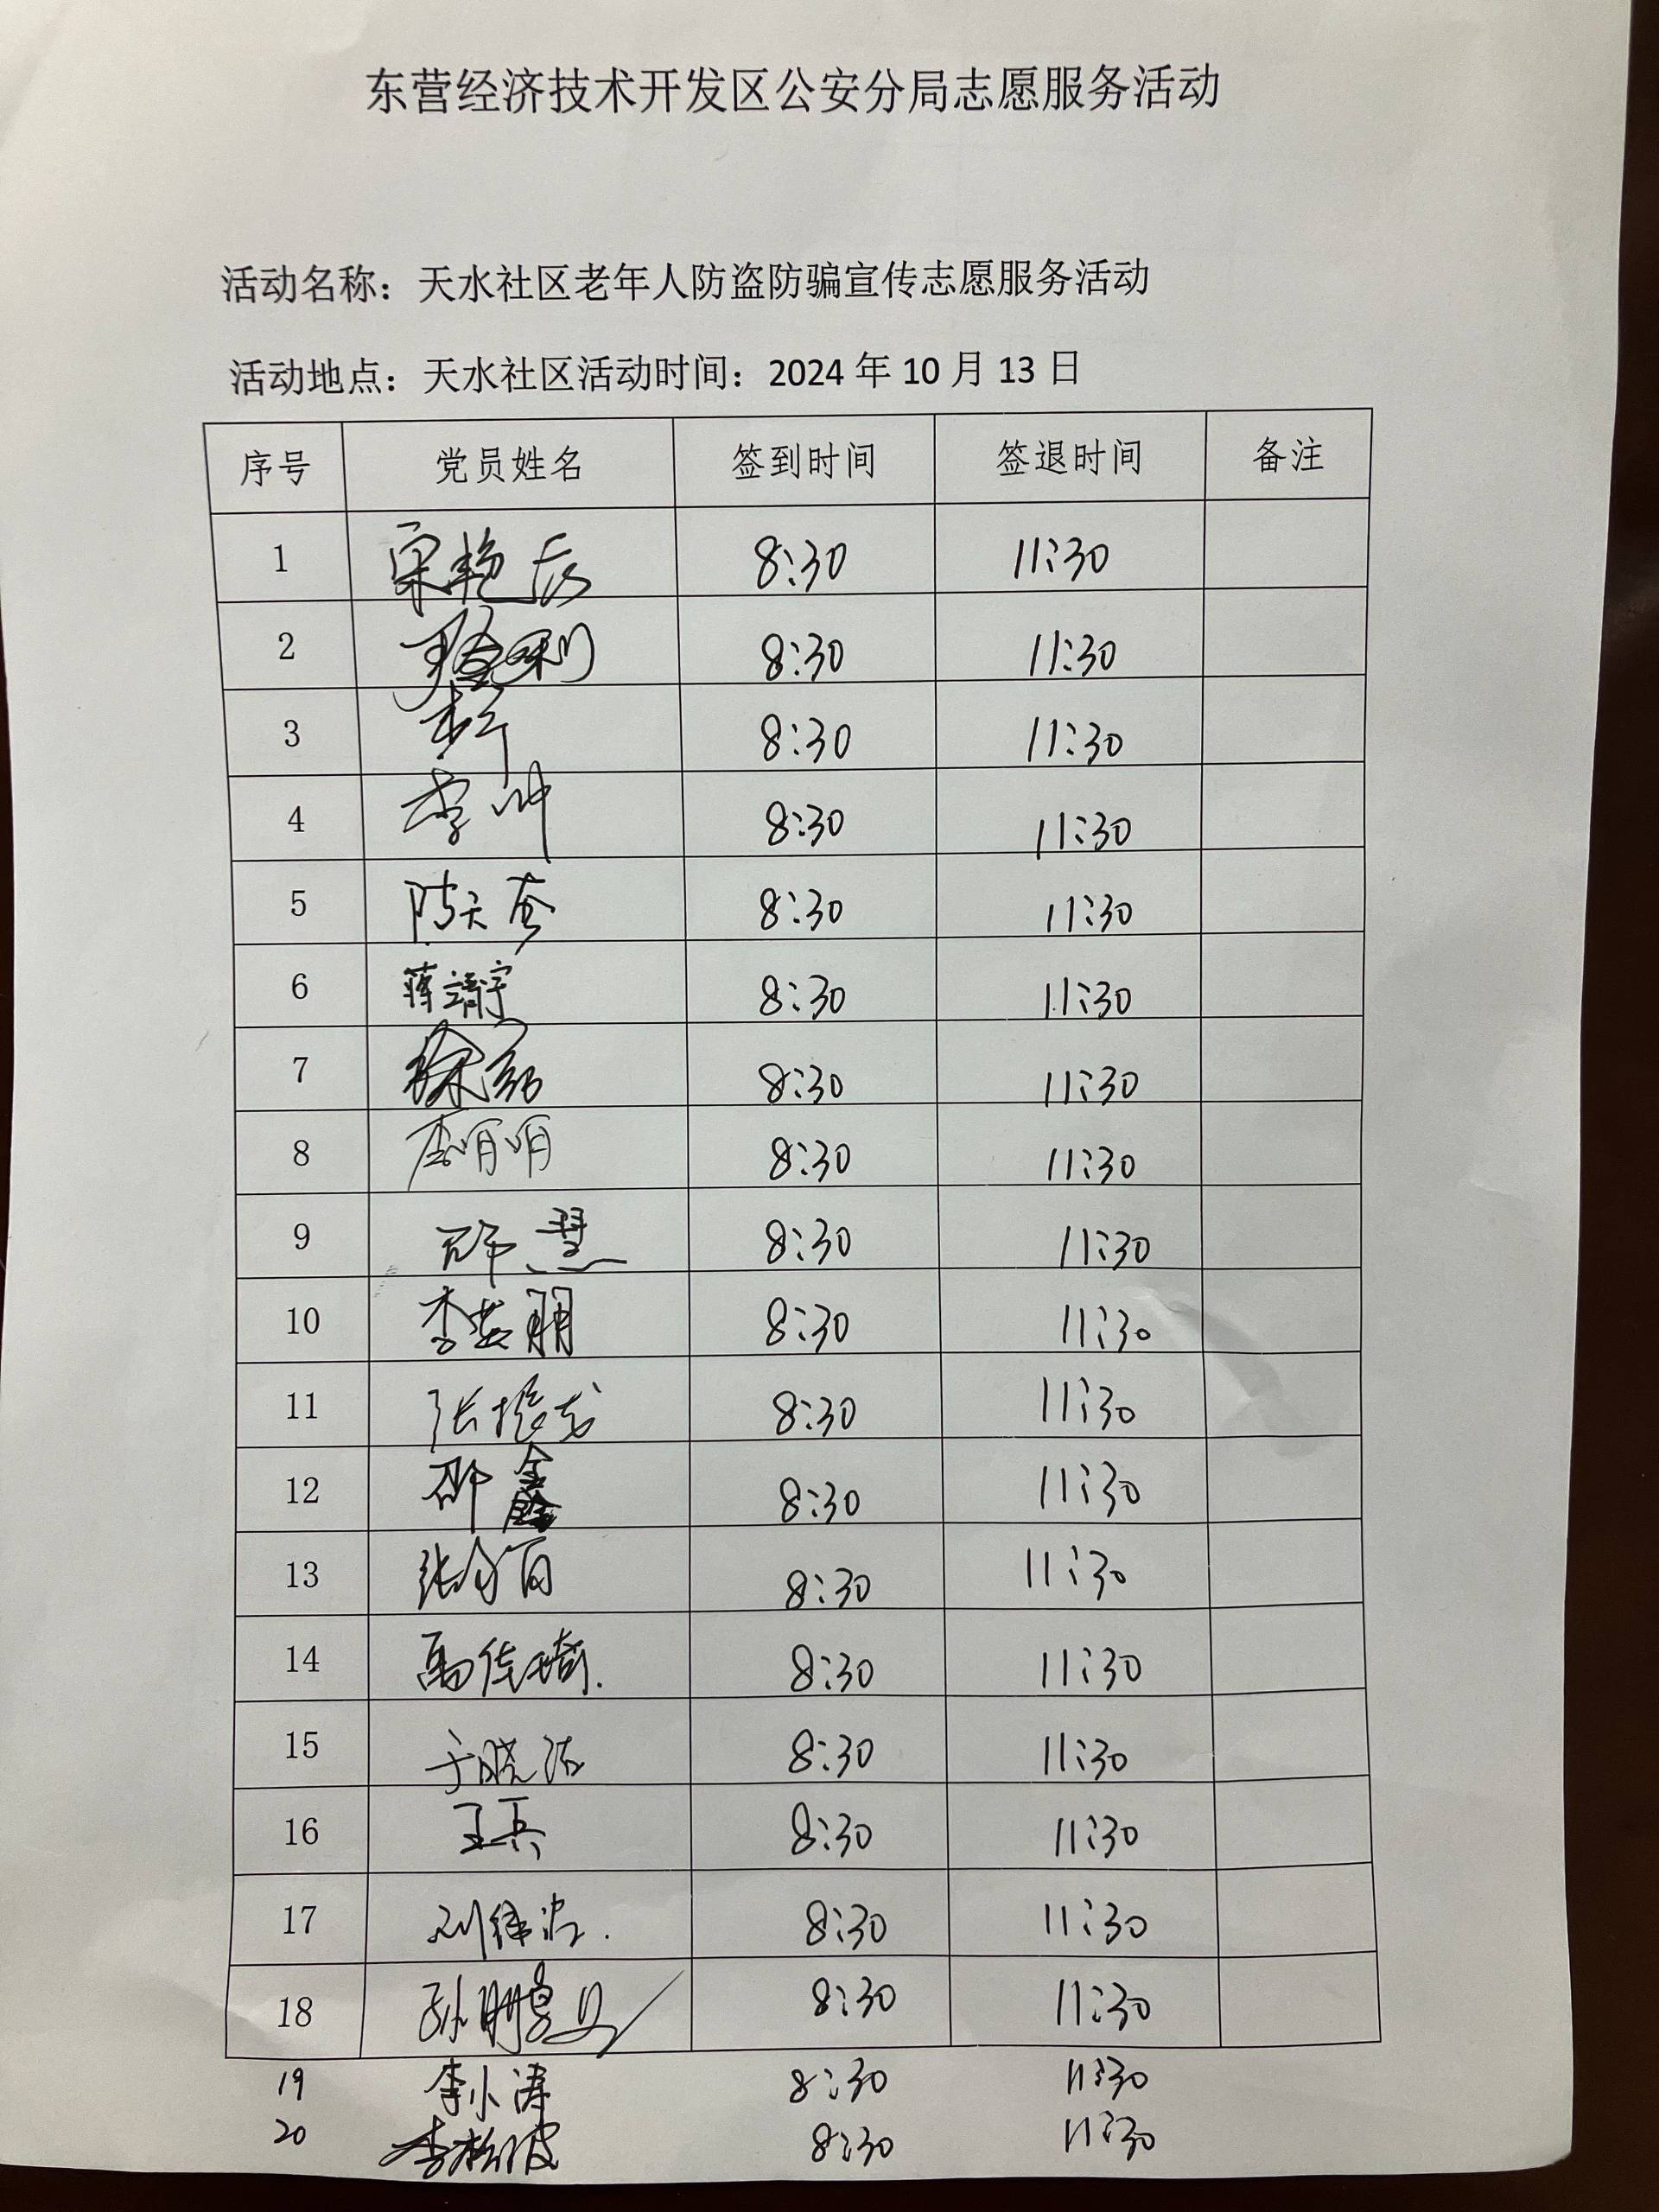 东营经济技术开发区公安分局志愿服务活动
活动名称：天水社区老年人防盗防骗宣传志愿服务活动
活动地点：天水社区活动时间：2024 年 10 月 13 日
序号 党员姓名 签到时间 签退时间 备注
1 宋艳辰 8:30 11:30
2 8:30 11:30
3 8:30 11:30
4 李帅 8:30 11:30
5 陈天奋 8:30 11:30
6 蒋靖宇 8:30 11:30
7 8:30 11:30
8 李明明 8:30 11:30
9 慧 8:30 11:30
10 李英朋 8:30 11:30
11 张振龙 8:30 11:30
12 邵鑫 8:30 11:30
13 张 8:30 11:30
14 高佳琦. 8:30 11:30
15 于晓洁 8:30 11:30
16 王兵 8:30 11:30
17 刘 8:30 11:30
18 孙鹏 8:30 11:30
19 李小涛 8:30 11:30
20 李松波 8:30 11:30